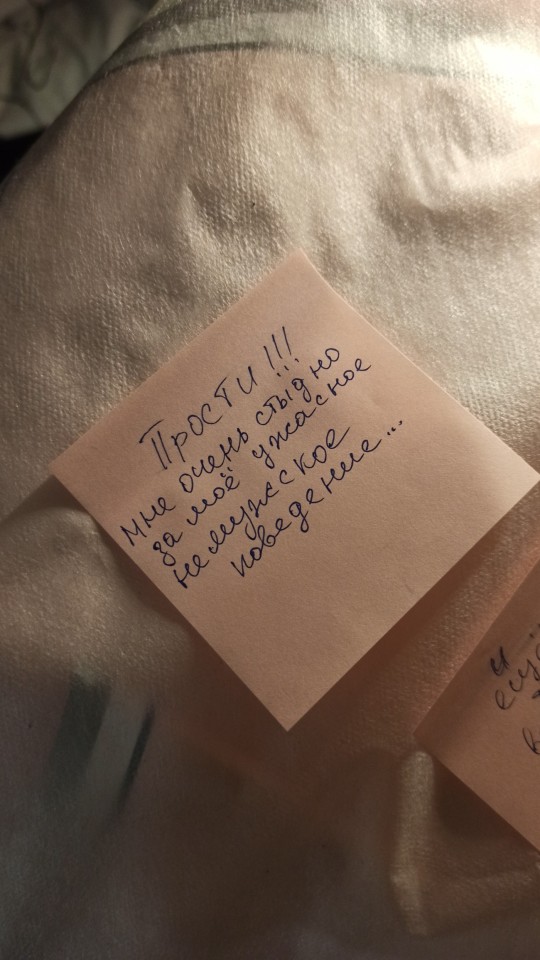 Прости!!!
мне очень стыдно
за моё ужасное
немужское
поведение...
и